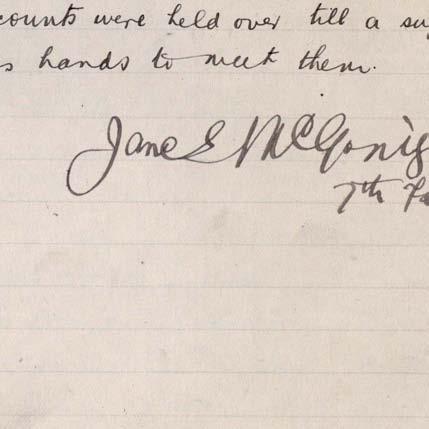 counts were held over till a su
s hands to meet them.
Jane E McGonig
7th Fa